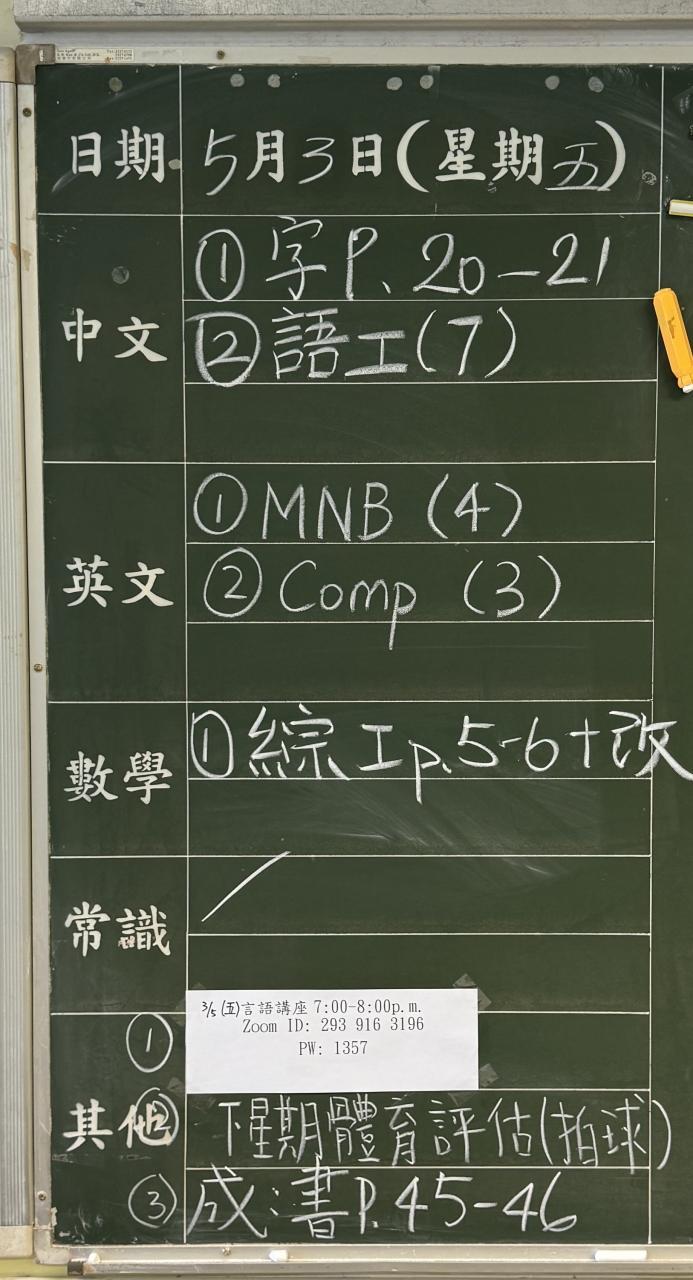 日期 5月3日(星期五)
中文
① 字P. 20-21
② 語工(7)
英文
① MNB (4)
② Comp (3)
數學
① 綜工p.5-6+改
常識
/
其他
① 3/5 (五)言語講座 7:00-8:00p.m.
Zoom ID: 293 916 3196
PW: 1357
② 下星期體育評估(拍球)
③ 成:書P.45-46